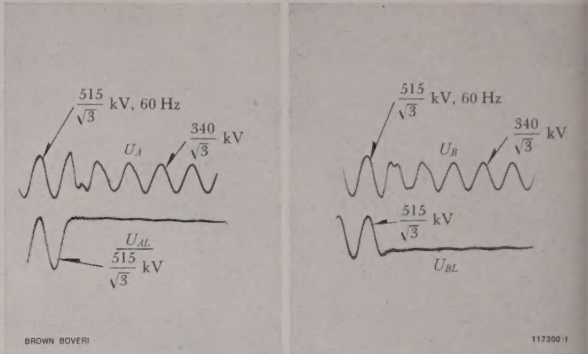 515/√3 kV, 60 Hz
U_A
340/√3 kV
U_AL
515/√3 kV
BROWN BOVERI
515/√3 kV, 60 Hz
U_B
340/√3 kV
515/√3 kV
U_BL
117300·1